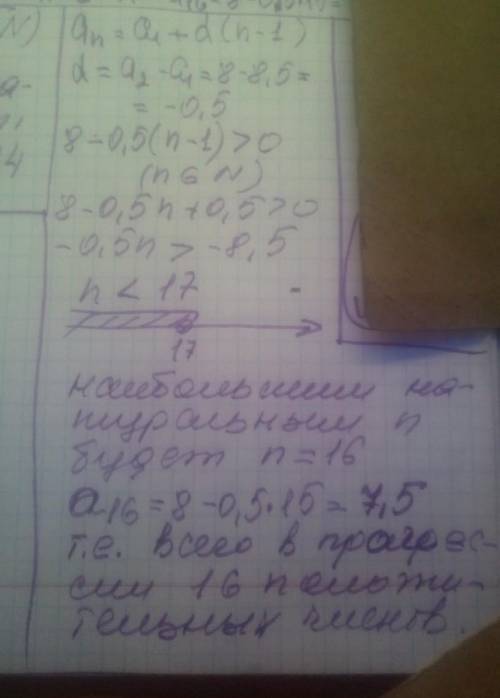 aₙ = a₁ + d(n-1)
d = a₂ - a₁ = 8 - 8,5 =
= -0,5
8 - 0,5(n-1) > 0
(n ∈ N)
8 - 0,5n + 0,5 > 0
-0,5n > -8,5
n < 17
17
наибольшим на-
туральным n
будет n = 16
a₁₆ = 8 - 0,5·15 = 7,5
т.е. всего в прогрес-
сии 16 положи-
тельных членов.
N)